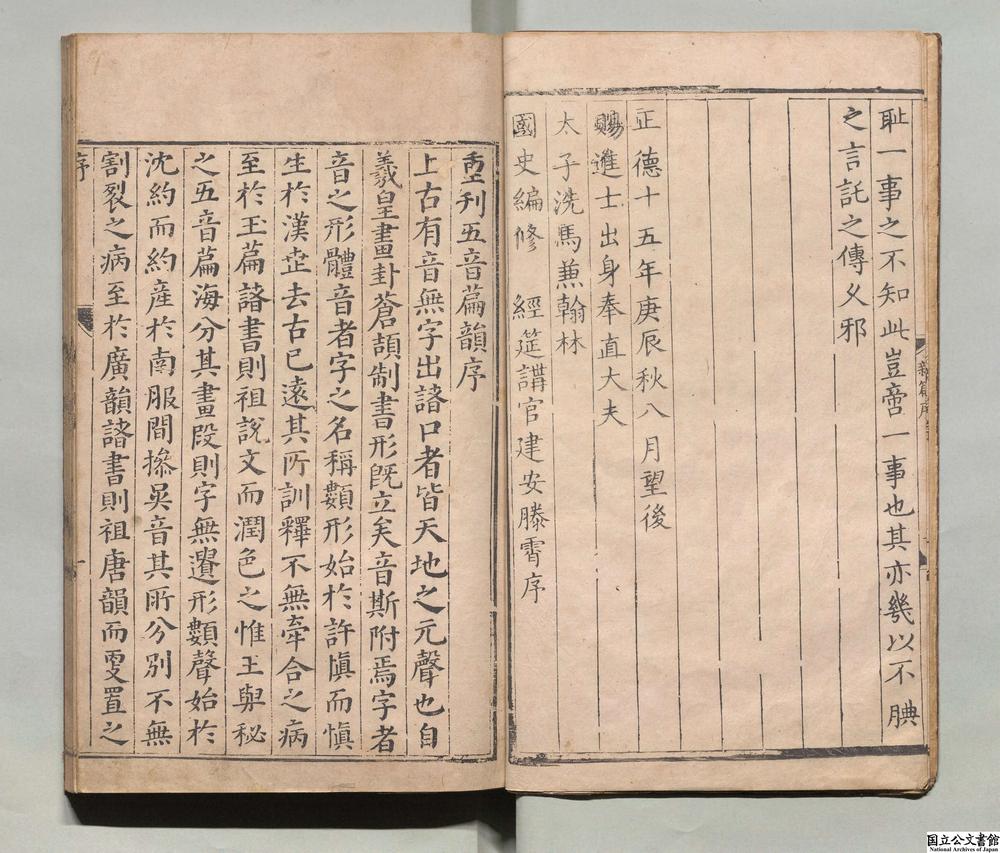 耻一事之不知此豈啻一事也其亦幾以不腆
之言託之傳乂邪
正德十五年庚辰秋八月望後
賜進士出身奉直大夫
太子洗馬蒹翰林
國史編修　經筵講官建安滕霄序
重刊五音篇韻序
上古有音無字出諸口者皆天地之元聲也自
羲皇畫卦蒼頡制書形旣立矣音斯附焉字者
音之形體音者字之名稱顙形始於許愼而愼
生於漢世去古已逺其所訓釋不無牽合之病
至於玉篇諸書則祖說文而潤色之惟玉與秘
之五音篇海分其畫段則字無遺形顙聲始於
沈約而約産於南服間摻吳音其所分別不無
割裂之病至於廣韻諸書則祖唐韻而更置之
序
國立公文書館
National Archives of Japan